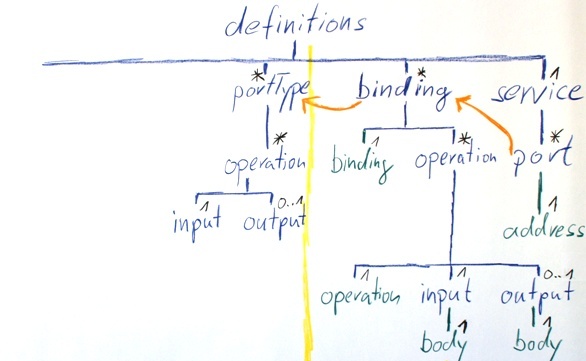 definitions
* * 1
portType binding service
* 1 * *
operation binding operation port
1 0..1 1
input output address
1 1 0..1
operation input output
1 1
body body